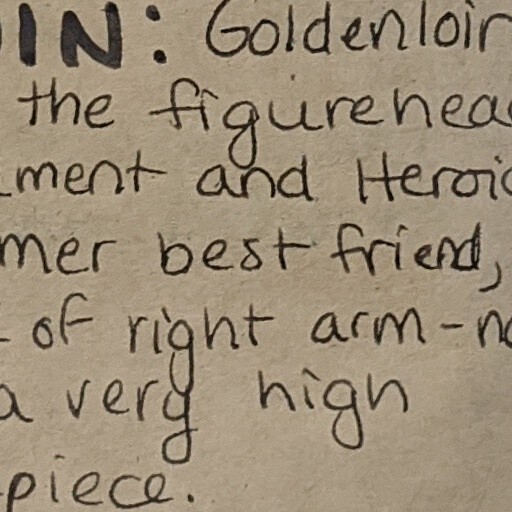 IN: Goldenloin
the figurehea
ment and Heroic
mer best friend,
of right arm-no
a very high
piece.